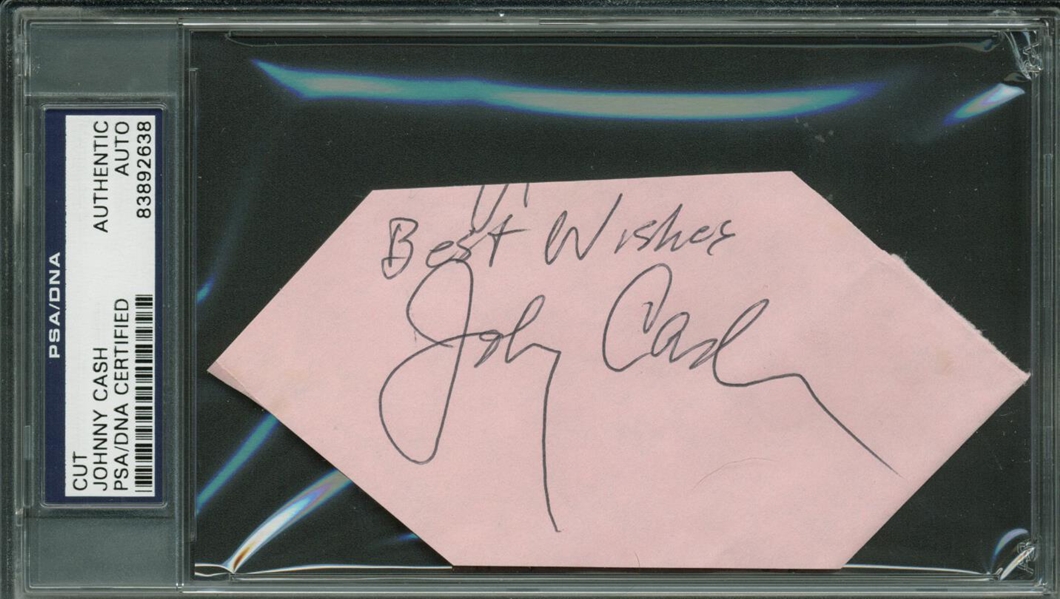 PSA/DNA
CUT
JOHNNY CASH
PSA/DNA CERTIFIED
AUTHENTIC
AUTO
83892638
Best Wishes
Johnny Cash